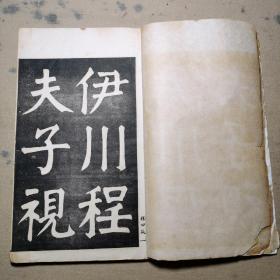 伊川程
夫子視